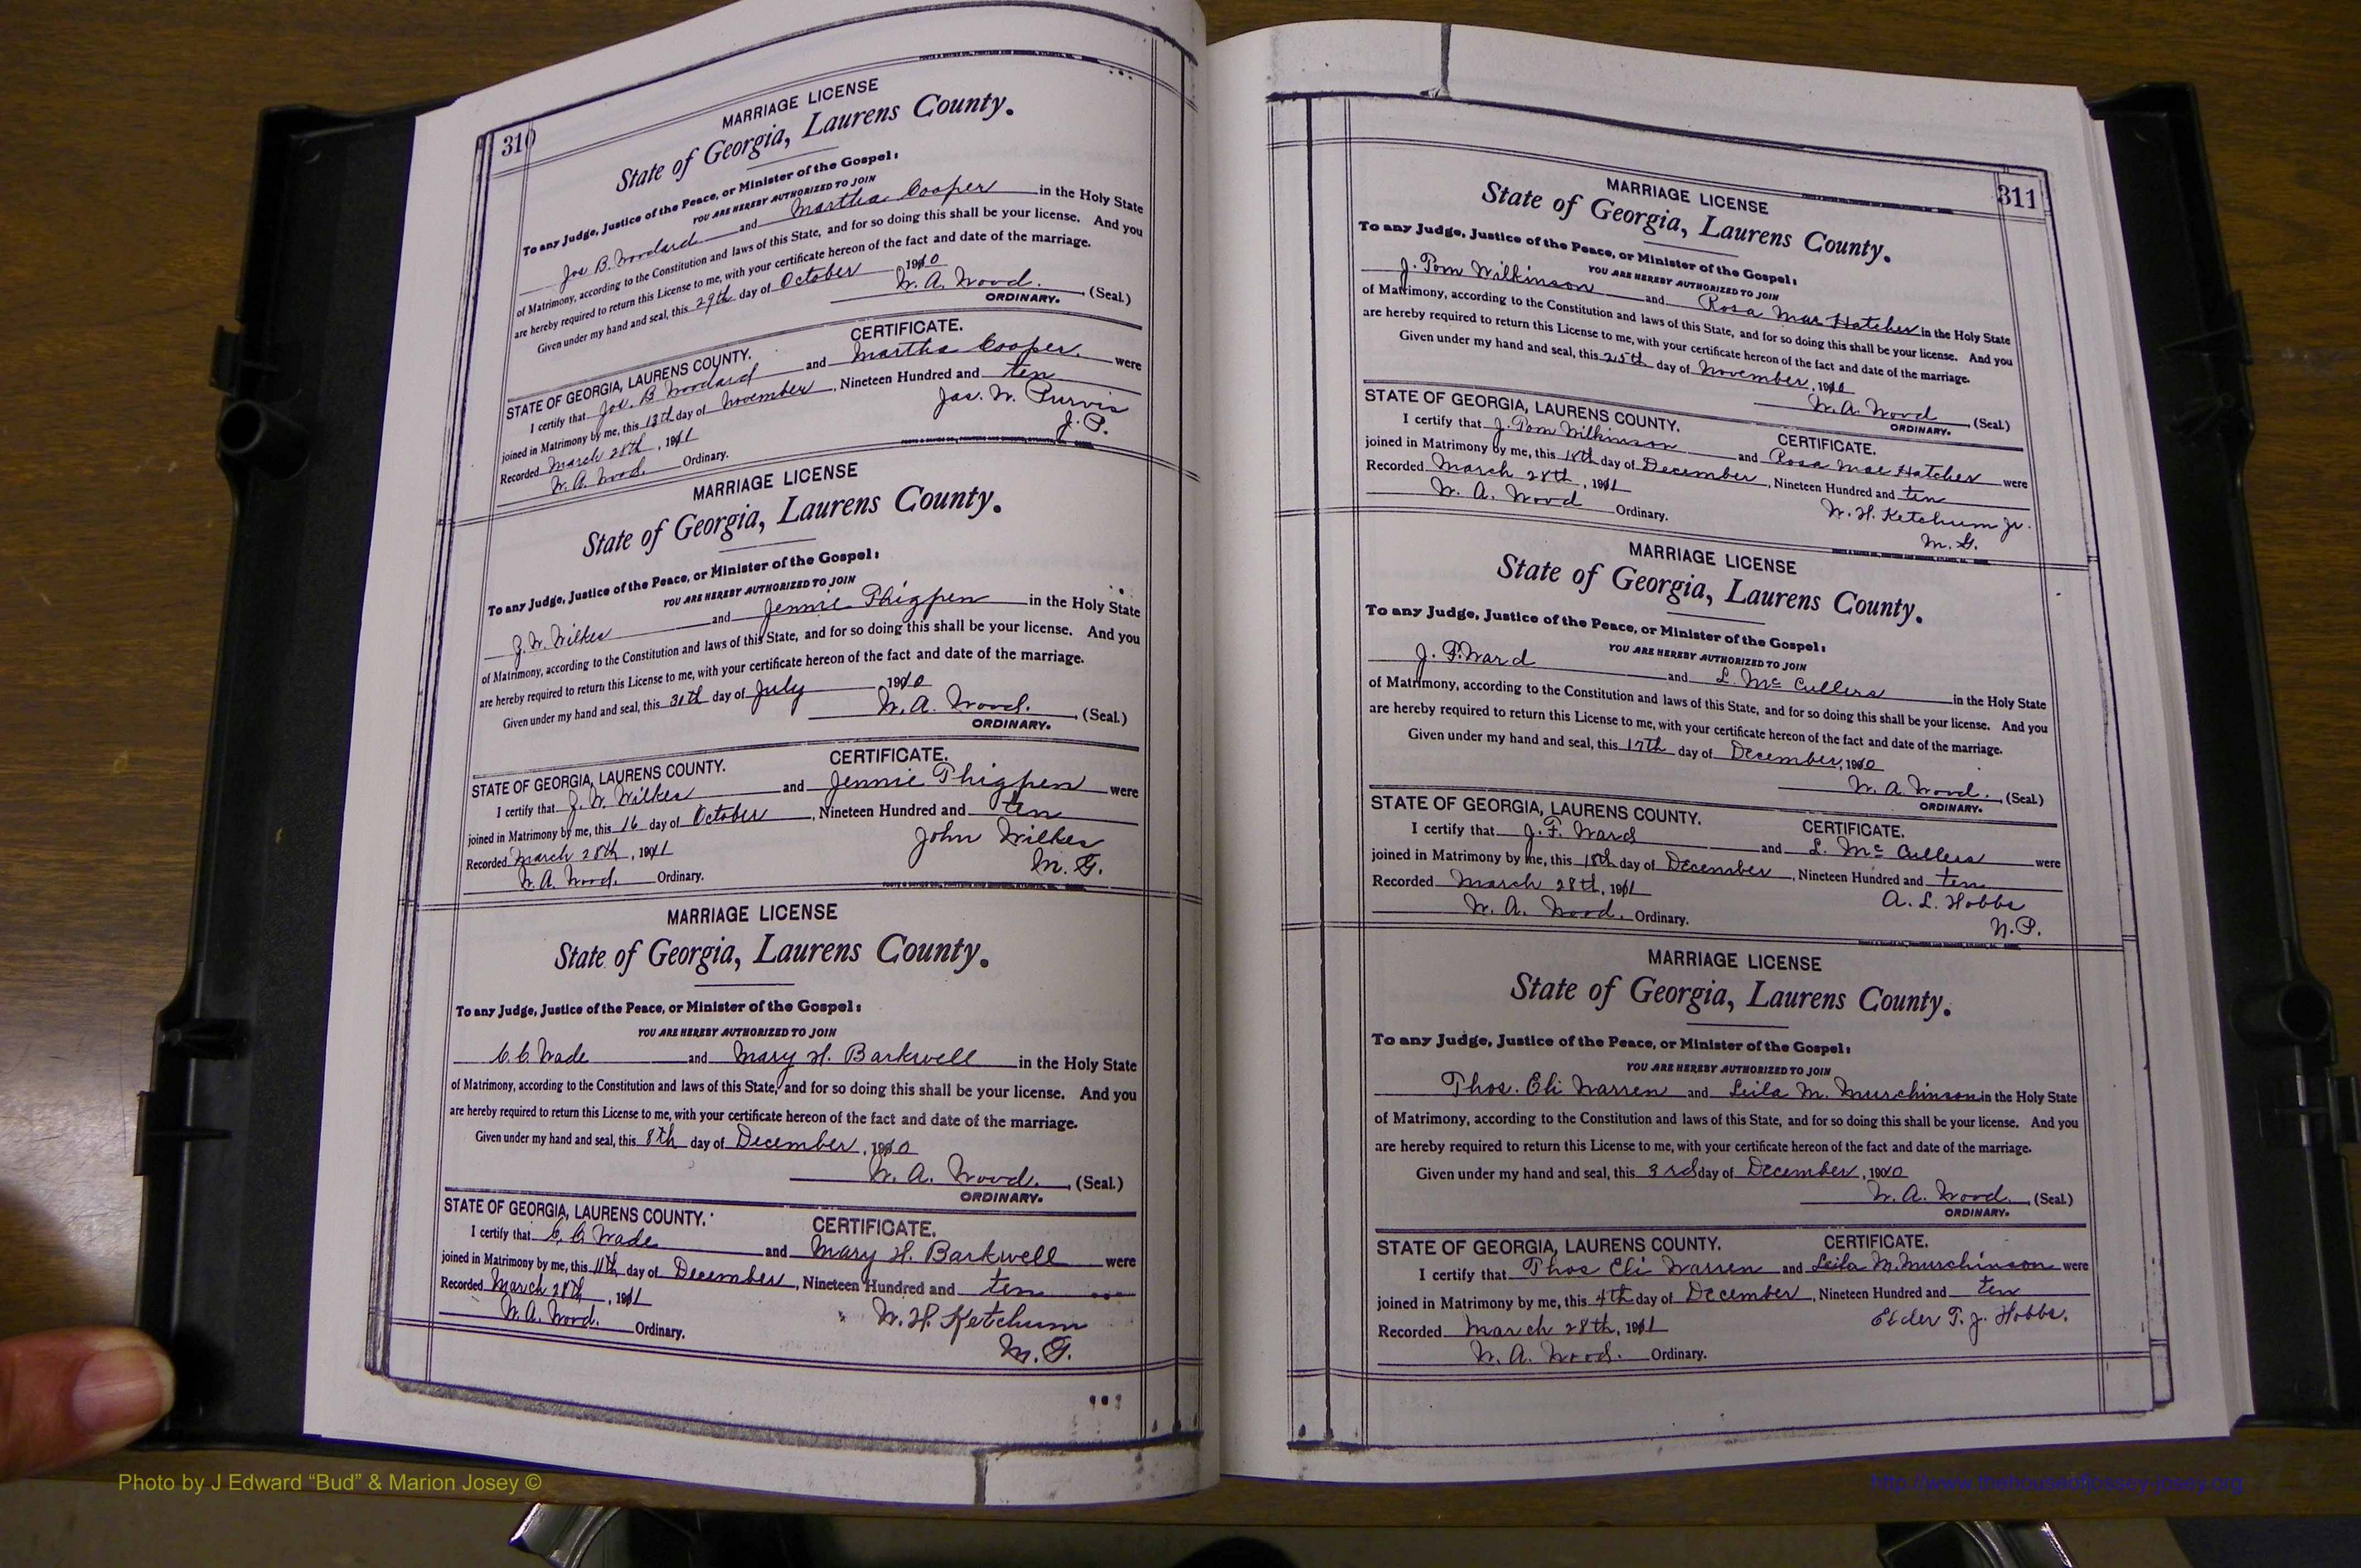 310
MARRIAGE LICENSE
State of Georgia, Laurens County.
To any Judge, Justice of the Peace, or Minister of the Gospel:
YOU ARE HEREBY AUTHORIZED TO JOIN
Jos B. Woodard and Martha Cooper in the Holy State
of Matrimony, according to the Constitution and laws of this State, and for so doing this shall be your license. And you
are hereby required to return this License to me, with your certificate hereon of the fact and date of the marriage.
Given under my hand and seal, this 29th day of October, 1910
W. A. Wood. (Seal.)
ORDINARY.
STATE OF GEORGIA, LAURENS COUNTY. CERTIFICATE.
I certify that Jos. B Woodard and Martha Cooper. were
joined in Matrimony by me, this 13th day of November, Nineteen Hundred and ten
Recorded March 28th, 1911 Jas. W. Purvis
W. A. Wood. Ordinary. J. P.
MARRIAGE LICENSE
State of Georgia, Laurens County.
To any Judge, Justice of the Peace, or Minister of the Gospel:
YOU ARE HEREBY AUTHORIZED TO JOIN
J. W. Wilkes and Jennie Thigpen in the Holy State
of Matrimony, according to the Constitution and laws of this State, and for so doing this shall be your license. And you
are hereby required to return this License to me, with your certificate hereon of the fact and date of the marriage.
Given under my hand and seal, this 30th day of July, 1910
W. A. Wood. (Seal.)
ORDINARY.
STATE OF GEORGIA, LAURENS COUNTY. CERTIFICATE.
I certify that J. W. Wilkes and Jennie Thigpen were
joined in Matrimony by me, this 16 day of October, Nineteen Hundred and ten
Recorded March 28th, 1911 John Wilkes
W. A. Wood. Ordinary. M. G.
MARRIAGE LICENSE
State of Georgia, Laurens County.
To any Judge, Justice of the Peace, or Minister of the Gospel:
YOU ARE HEREBY AUTHORIZED TO JOIN
C. C. Wade and Mary H. Barkwell in the Holy State
of Matrimony, according to the Constitution and laws of this State, and for so doing this shall be your license. And you
are hereby required to return this License to me, with your certificate hereon of the fact and date of the marriage.
Given under my hand and seal, this 8th day of December, 1910
W. A. Wood. (Seal.)
ORDINARY.
STATE OF GEORGIA, LAURENS COUNTY. CERTIFICATE.
I certify that C. C. Wade and Mary H. Barkwell were
joined in Matrimony by me, this 11th day of December, Nineteen Hundred and ten
Recorded March 28th, 1911 W. H. Ketchum
W. A. Wood. Ordinary. M. G.
311
MARRIAGE LICENSE
State of Georgia, Laurens County.
To any Judge, Justice of the Peace, or Minister of the Gospel:
YOU ARE HEREBY AUTHORIZED TO JOIN
J. Tom Wilkinson and Rosa Mae Hatcher in the Holy State
of Matrimony, according to the Constitution and laws of this State, and for so doing this shall be your license. And you
are hereby required to return this License to me, with your certificate hereon of the fact and date of the marriage.
Given under my hand and seal, this 25th day of November, 1910
W. A. Wood (Seal.)
ORDINARY.
STATE OF GEORGIA, LAURENS COUNTY. CERTIFICATE.
I certify that J. Tom Wilkinson and Rosa Mae Hatcher were
joined in Matrimony by me, this 18th day of December, Nineteen Hundred and ten
Recorded March 28th, 1911 W. H. Ketchum Jr.
W. A. Wood Ordinary. M. G.
MARRIAGE LICENSE
State of Georgia, Laurens County.
To any Judge, Justice of the Peace, or Minister of the Gospel:
YOU ARE HEREBY AUTHORIZED TO JOIN
J. F. Ward and L. McCullers in the Holy State
of Matrimony, according to the Constitution and laws of this State, and for so doing this shall be your license. And you
are hereby required to return this License to me, with your certificate hereon of the fact and date of the marriage.
Given under my hand and seal, this 17th day of December, 1910
W. A. Wood. (Seal.)
ORDINARY.
STATE OF GEORGIA, LAURENS COUNTY. CERTIFICATE.
I certify that J. F. Ward and L. McCullers were
joined in Matrimony by me, this 18th day of December, Nineteen Hundred and ten
Recorded March 28th, 1911 A. L. Hobbs
W. A. Wood. Ordinary. N. P.
MARRIAGE LICENSE
State of Georgia, Laurens County.
To any Judge, Justice of the Peace, or Minister of the Gospel:
YOU ARE HEREBY AUTHORIZED TO JOIN
Thos. Eli Warren and Leila M. Murchinson in the Holy State
of Matrimony, according to the Constitution and laws of this State, and for so doing this shall be your license. And you
are hereby required to return this License to me, with your certificate hereon of the fact and date of the marriage.
Given under my hand and seal, this 3rd day of December, 1910
W. A. Wood. (Seal.)
ORDINARY.
STATE OF GEORGIA, LAURENS COUNTY. CERTIFICATE.
I certify that Thos Eli Warren and Leila M. Murchinson were
joined in Matrimony by me, this 4th day of December, Nineteen Hundred and ten
Recorded March 28th, 1911 Elder T. J. Hobbs.
W. A. Wood. Ordinary.
Photo by J Edward “Bud” & Marion Josey ©
http://www.thehouseofjossey-josey.org